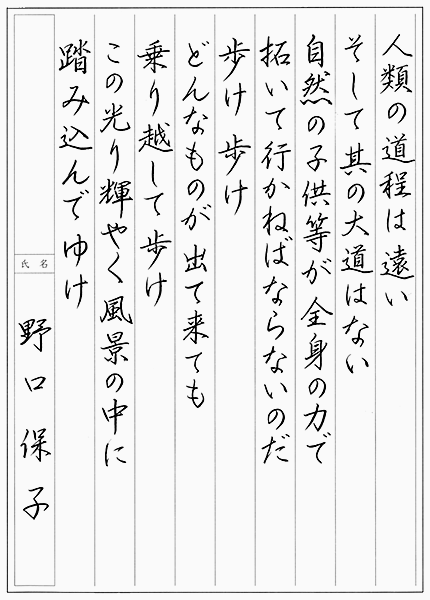 人類の道程は遠い
そして其の大道はない
自然の子供等が全身の力で
拓いて行かねばならないのだ
歩け歩け
どんなものが出て来ても
乗り越して歩け
この光り輝やく風景の中に
踏み込んでゆけ
氏名
野口保子